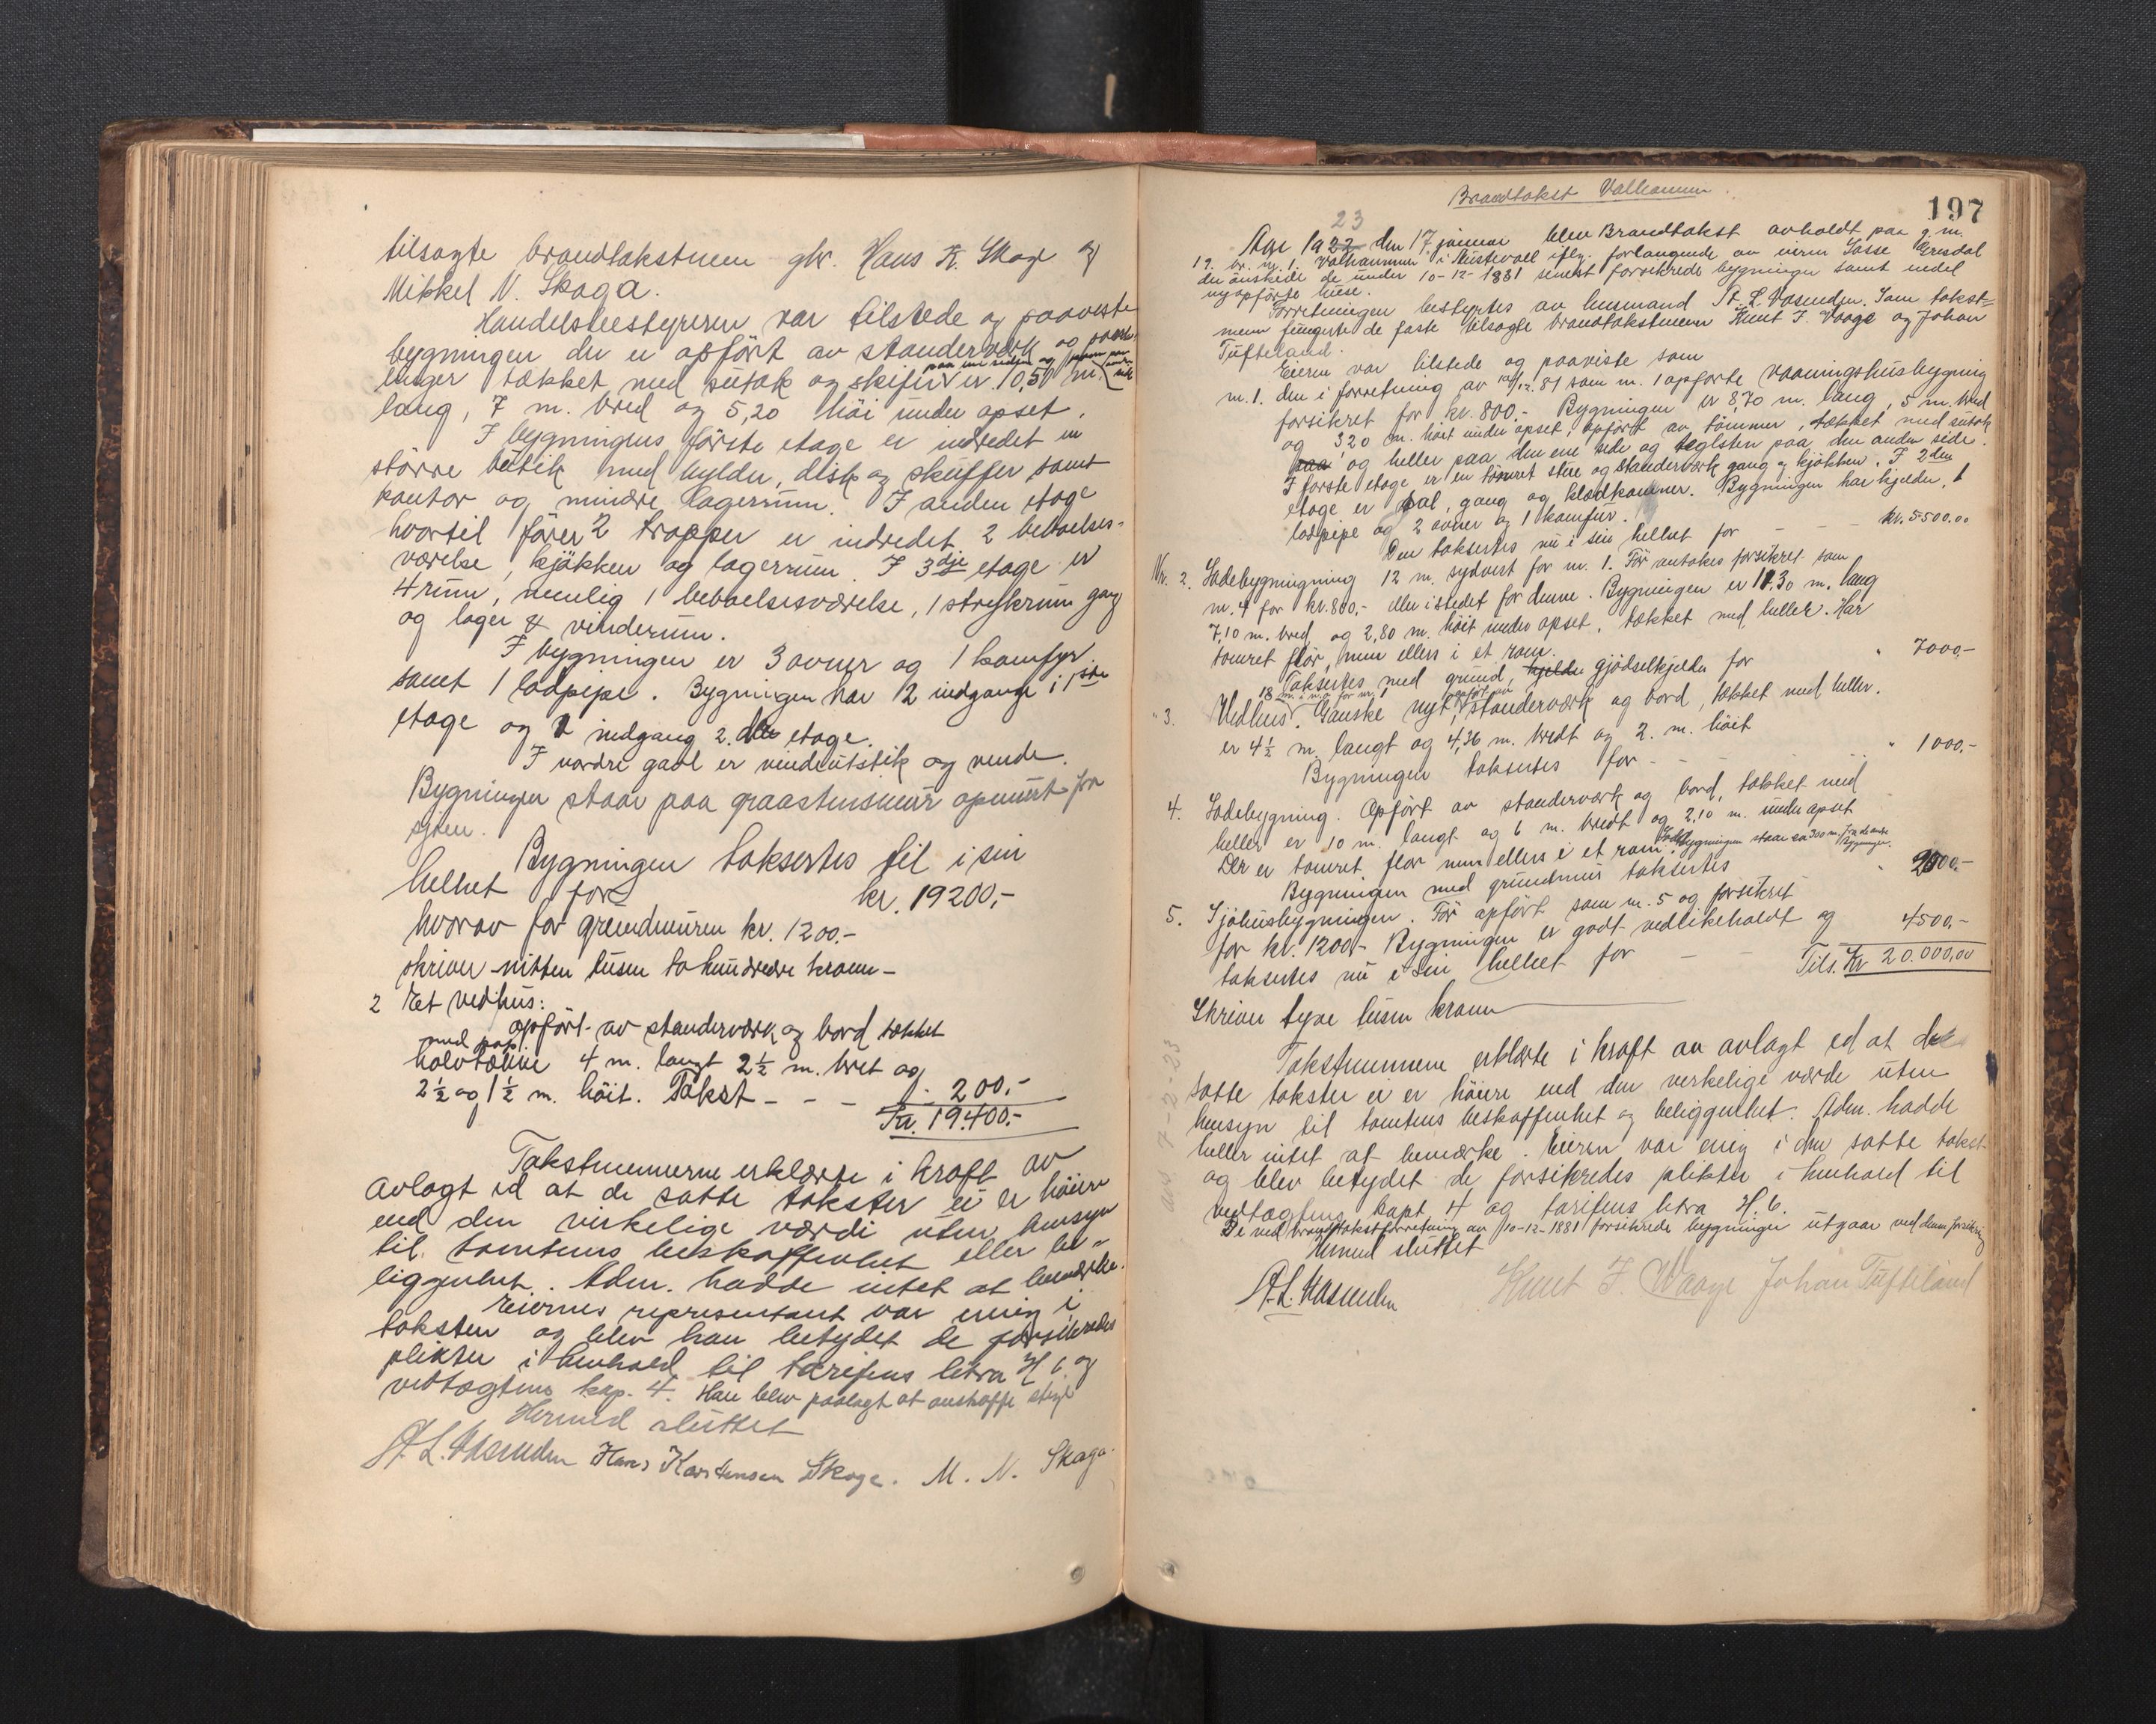 tilsagte brandtakstmenn gbr. Hans K. Skage og
Mikkel N. Skaga.
Handelsbestyreren var tilstede og paaviste
bygningen der er opført av standerværk og
paa ene siden og
længer tækket med sutak og skifer er 10,50 m.
lang, 7 m. bred og 5,20 høi under opset.
I bygningens første etage er indredet en
større butik med hylder, disk og skuffer samt
kontor og mindre lagerrum. I anden etage
hvortil fører 2 trapper er indredet 2 beboelses-
værelse, kjøkken og lagerrum. I 3dje etage er
4 rum, nemlig 1 beboelsesværelse, 1 strykrum gang
og lager & vinderum.
I bygningen er 3 ovner og 1 komfyr
samt 1 lodpipe. Bygningen har 12 indgange i 1ste
etage og 1 indgang 2.den etage.
I nordre gavl er vindeutstik og vinde.
Bygningen staar paa graastensmur opmurt fra
sjøen.
Bygningen taksertes til i sin
helhet for kr. 19200,-
hvorav for grundmuren kr. 1200.-
skriver nitten tusen tohundrede kroner -
2 Et vedhus:
opført av standerværk og bord tækket
med pap.
halvtække 4 m. langt 2½ m. bret og
2½ og 1½ m. høit. Takst - - - 200.-
Kr. 19.400.-
Takstmennerne erklærte i kraft av
avlagt ed at de satte takster ei er høiere
end den virkelige værdi uten hensyn
til tomtens beskaffenhet eller be-
liggenhet. Adm. hadde intet at bemærke.
Eiernes representant var enig i
taksten og blev han betydet de forsikredes
plikter i henhold til tarifens litra H 6 og
vedtægtens kap. 4. Han blev paalagt at anskaffe stige
Hermed sluttet
A. L. Vasenden Hans Karstensen Skage. M. N. Skaga.
Brandtakst Valhammer.
197
23
Aar 1922 den 17 januar blev Brandtakst avholdt paa g.nr.
19. br. nr. 1. Valhammer i Austevoll iflg. forlangende av eieren Lasse Ersdal
der ønskede de under 10-12-1881 senest forsikrede bygninger samt endel
nyopførte huse.
Forretningen bestyrtes av lensmand A. L. Vasenden. Som takst-
menn fungerte de faste tilsagte brandtakstmenn Knut J. Vaage og Johan
Tufteland.
Eieren var tilstede og paaviste som
nr. 1. den i forretning av 10/12. 81 som nr. 1 opførte vaaningshusbygning
forsikret for kr. 800.- Bygningen er 8,70 m. lang, 5 m. bred
og 3,20 m. høit under opset, opført av tømmer, tækket med sutak
paa og heller paa den ene side og teglsten paa den anden side.
I første etage er en tømret stue og standerværk gang og kjøkken. I 2den
etage er sal, gang og klædkammer. Bygningen har kjelder, 1
lodpipe og 2 ovner og 1 komfur.
Den taksertes nu i sin helhet for - - - kr. 5500.00
Nr. 2. Ladebygningning 12 m. sydvest for nr. 1. Før antakes forsikret som
nr. 4 for kr. 800,- eller istedet for denne. Bygningen er 18.30 m. lang
7,10 m. bred og 2,80 m. høit under opset, tækket med heller. Har
tømret flør, men ellers i et rom.
Taksertes med grund, kjelder gjødselkjelder for " 7000,-
18 m. n.ø. for nr. 1 opført av
" 3. Vedhus. Ganske nyt, standerværk og bord, tækket med heller.
er 4½ m. langt og 4,36 m. bredt og 2. m. høit
Bygningen taksertes for - - - " 1000.-
4. Ladebygning. Opført av standerværk og bord, tækket med
heller er 10 m. langt og 6 m. bredt og 2,10 m. under opset
Der er tømret flør men ellers i et rom. Ladebygningen staar ca 300 m. fra de andre
bygninger.
Bygningen med grundmur taksertes " 2000.-
5. Sjøhusbygningen. Før opført som nr. 5 og forsikret
for kr. 1200.- Bygningen er godt vedlikeholdt og
taksertes nu i sin helhet for - - 4500,-
Tils. Kr 20.000,00
Skriver tyve tusen kroner
Takstmennene erklærte i kraft av avlagt ed at de
satte takster ei er høiere end den verkelige værde uten
hensyn til tomtens beskaffenhet og beliggenhet. Adm. hadde
heller intet at bemærke. Eieren var enig i den satte takst
og blev betydet de forsikredes plikter i henhold til
vedtægtens kapt. 4 og tarifens litra H. 6.
De ved brandtakstforretning av 10-12-1881 forsikrede bygninger utgaar ved denne forsikring
Hermed sluttet
A. L. Vasenden Knut J. Waage Johan Tufteland
7-2-23